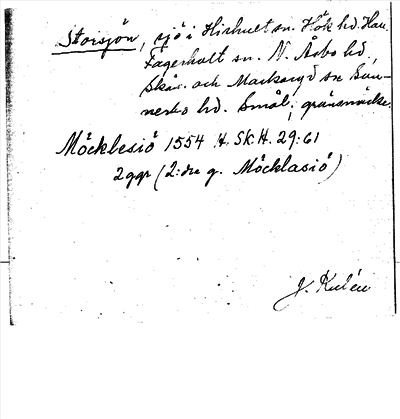 Storsjön, sjö i Hishult sn. Hök hd. Hall.
Fagerhult sn. N. Åsbo hd,
Skå. och Markaryd sn Sun-
nerbo hd. Smål; gränsmärke.
Möcklesiö 1554 H.Sk.H. 29:61
2ggr (2:dre g. Möcklasiö)